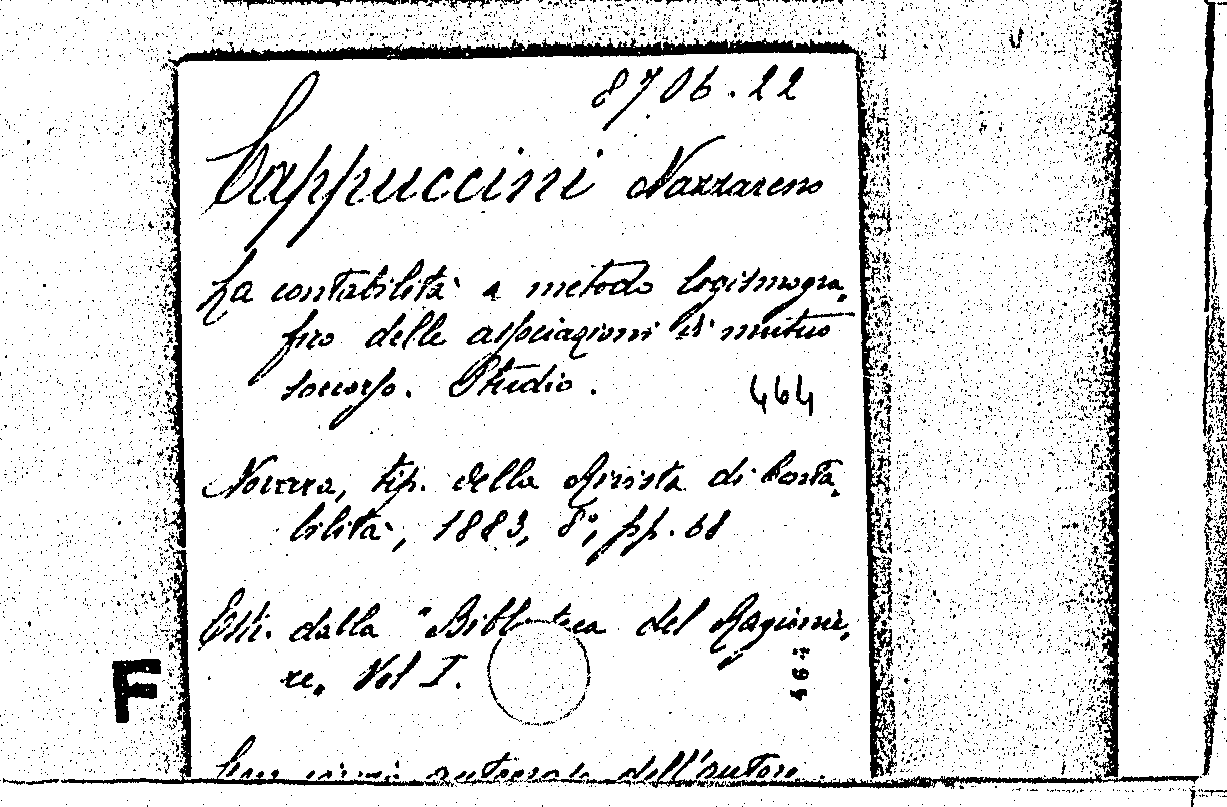 8706.22
Cappuccini Nazzareno
La contabilità a metodo logismogra-
fico delle associazioni di mutuo
soccorso. Studio.
464
Novara, tip. della Rivista di Conta-
bilità, 1883, 8°, pp. 68
Estr. dalla "Biblioteca del Ragionie-
re" Vol I.
464
F
Con firma autografa dell'autore.